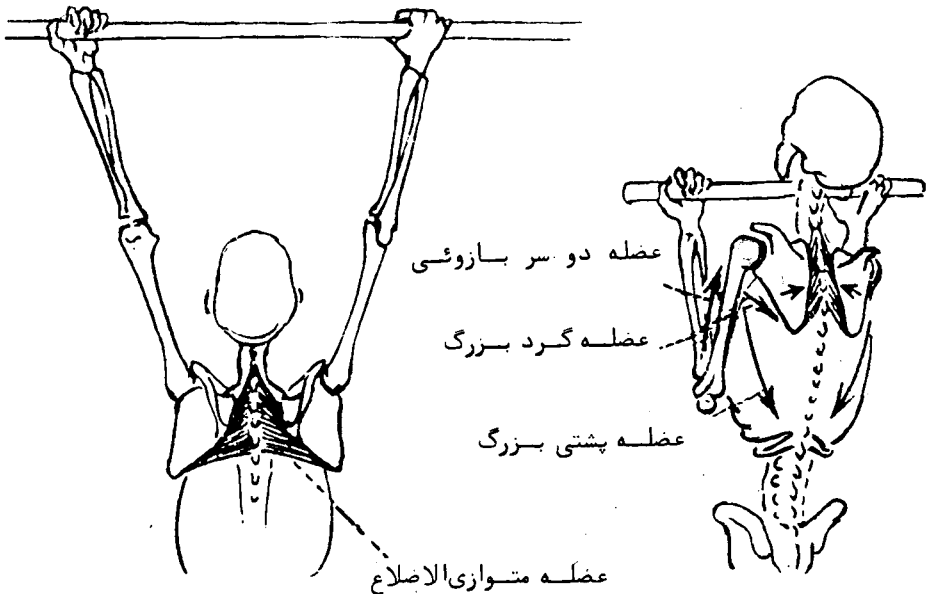 عضله دو سر بازوئی
عضله گرد بزرگ
عضله پشتی بزرگ
عضله متوازی‌الاضلاع